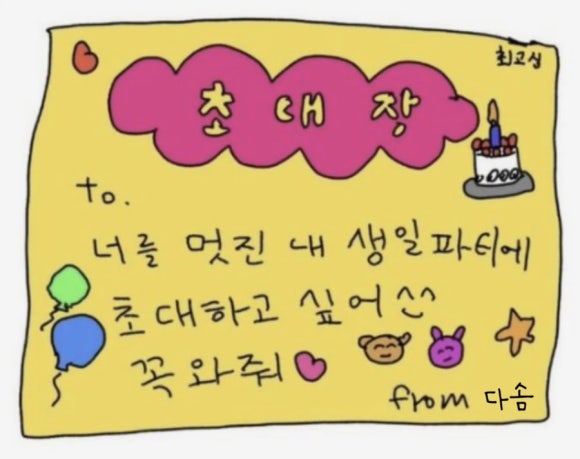 최고심
초대장
to.
너를 멋진 내 생일파티에
초대하고 싶어^^
꼭 와줘
from 다솜